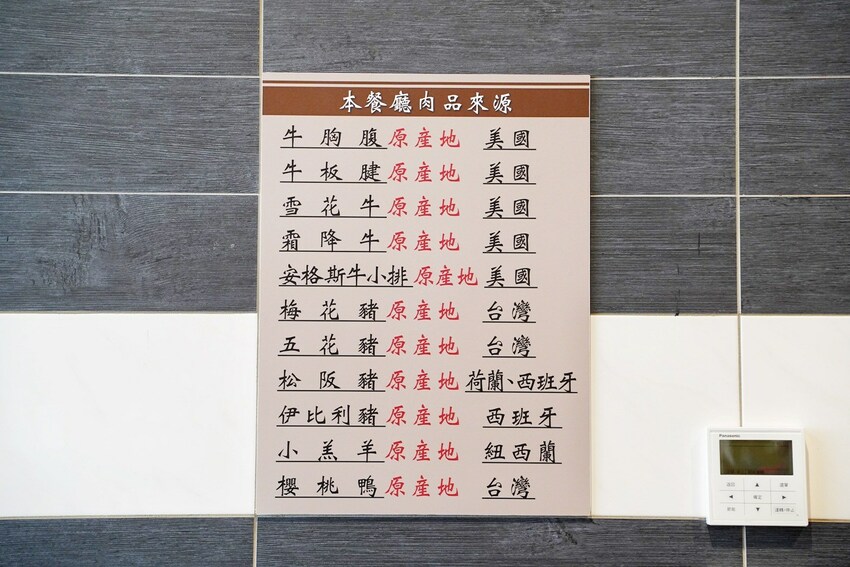 本餐廳肉品來源
牛胸腹原產地 美國
牛板腱原產地 美國
雪花牛原產地 美國
霜降牛原產地 美國
安格斯牛小排原產地 美國
梅花豬原產地 台灣
五花豬原產地 台灣
松阪豬原產地 荷蘭、西班牙
伊比利豬原產地 西班牙
小羔羊原產地 紐西蘭
櫻桃鴨原產地 台灣
Panasonic